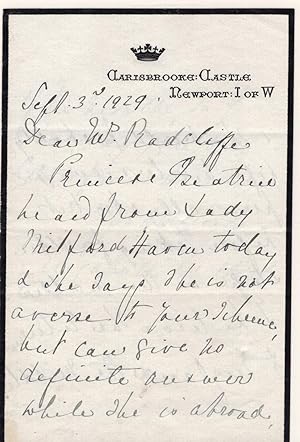 CARISBROOKE: CASTLE
NEWPORT: I OF W
Sept. 3rd 1929.
Dear Mr. Radcliffe
Princess Beatrice
heard from Lady
Milford Haven today
& she says she is not
averse to your Scheme,
but can give no
definite answer
while she is abroad,